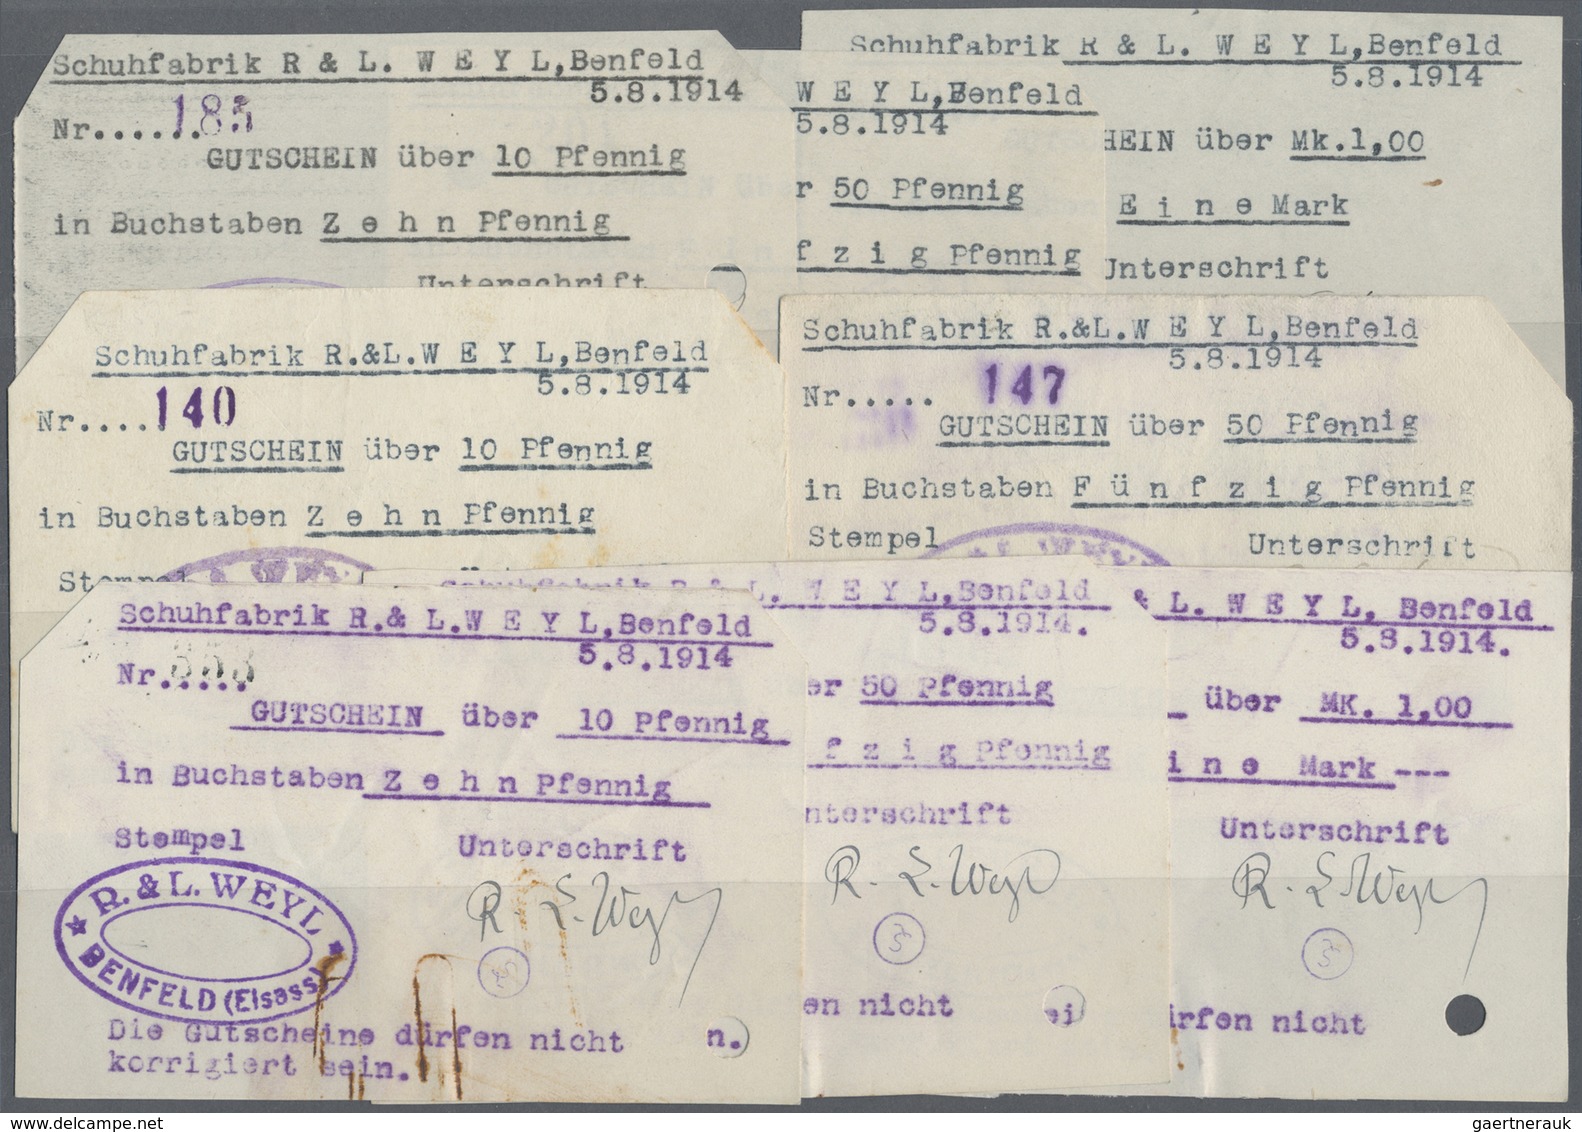 Schuhfabrik R & L. W E Y L, Benfeld
5.8.1914
Nr......185
GUTSCHEIN über 10 Pfennig
in Buchstaben Z e h n Pfennig
Unterschrift
W E Y L, Benfeld
5.8.1914
r 50 Pfennig
f z i g Pfennig
Schuhfabrik R & L. W E Y L, Benfeld
5.8.1914
HEIN über Mk.1,00
E i n e Mark
Unterschrift
Schuhfabrik R.&L.W E Y L, Benfeld
5.8.1914
Nr.....140
GUTSCHEIN über 10 Pfennig
in Buchstaben Z e h n Pfennig
Stempel
WEYL
Schuhfabrik R.&L.W E Y L, Benfeld
5.8.1914
Nr..... 147
GUTSCHEIN über 50 Pfennig
in Buchstaben F ü n f z i g Pfennig
Stempel Unterschrift
Schuhfabrik R.& L.W E Y L, Benfeld
5.8.1914
Nr.....
GUTSCHEIN über 10 Pfennig
in Buchstaben Z e h n Pfennig
Stempel Unterschrift
R. & L. WEYL
BENFELD (Elsass)
R. L. Weyl
Die Gutscheine dürfen nicht n.
korrigiert sein.
Schuhfabrik R & L. W E Y L, Benfeld
5.8.1914.
er 50 Pfennig
f z i g Pfennig
nterschrift
R. L. Weyl
en nicht ei
& L. W E Y L, Benfeld
5.8.1914.
über MK. 1,00
i n e Mark ---
Unterschrift
R. L. Weyl
ürfen nicht
gaertnerauk